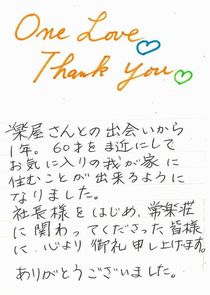 One Love
Thank You
楽屋さんとの出会いから
1年。60才を間近にして
お気に入りの我が家に
住むことが出来るように
なりました。
社長様をはじめ、常楽荘
に関わってくださった皆様
に、心より御礼申し上げます。
ありがとうございました。